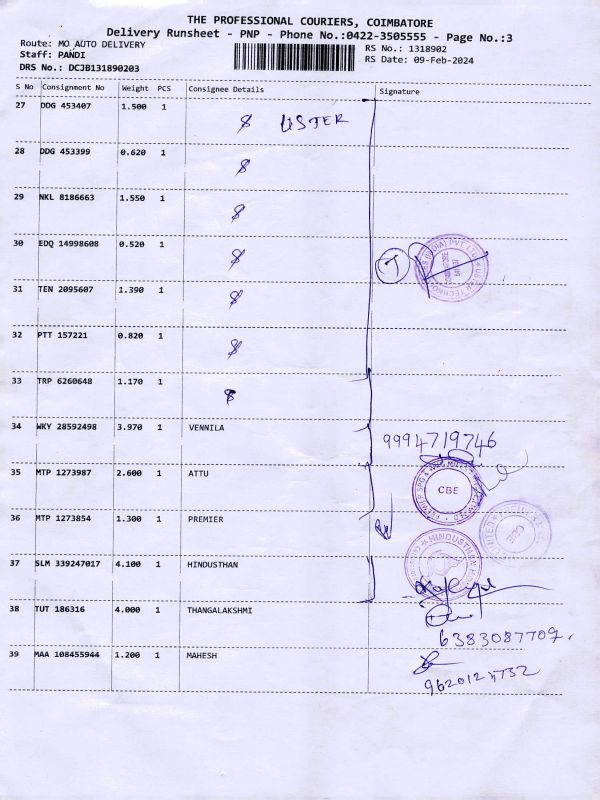 THE PROFESSIONAL COURIERS, COIMBATORE
Delivery Runsheet - PNP - Phone No.:0422-3505555 - Page No.:3
Route: MO AUTO DELIVERY
RS No.: 1318902
Staff: PANDI
RS Date: 09-Feb-2024
DRS No.: DCJB131890203
S No Consignment No Weight PCS Consignee Details Signature
27 DDG 453407 1.500 1
USTER
28 DDG 453399 0.620 1
29 NKL 8186663 1.550 1
30 EDQ 14998608 0.520 1
7
31 TEN 2095607 1.390 1
32 PTT 157221 0.820 1
33 TRP 6260648 1.170 1
34 WKY 28592498 3.970 1 VENNILA
9994719746
35 MTP 1273987 2.600 1 ATTU
CBE
36 MTP 1273854 1.300 1 PREMIER
37 SLM 339247017 4.100 1 HINDUSTHAN
38 TUT 186316 4.000 1 THANGALAKSHMI
6383087709.
39 MAA 108455944 1.200 1 MAHESH